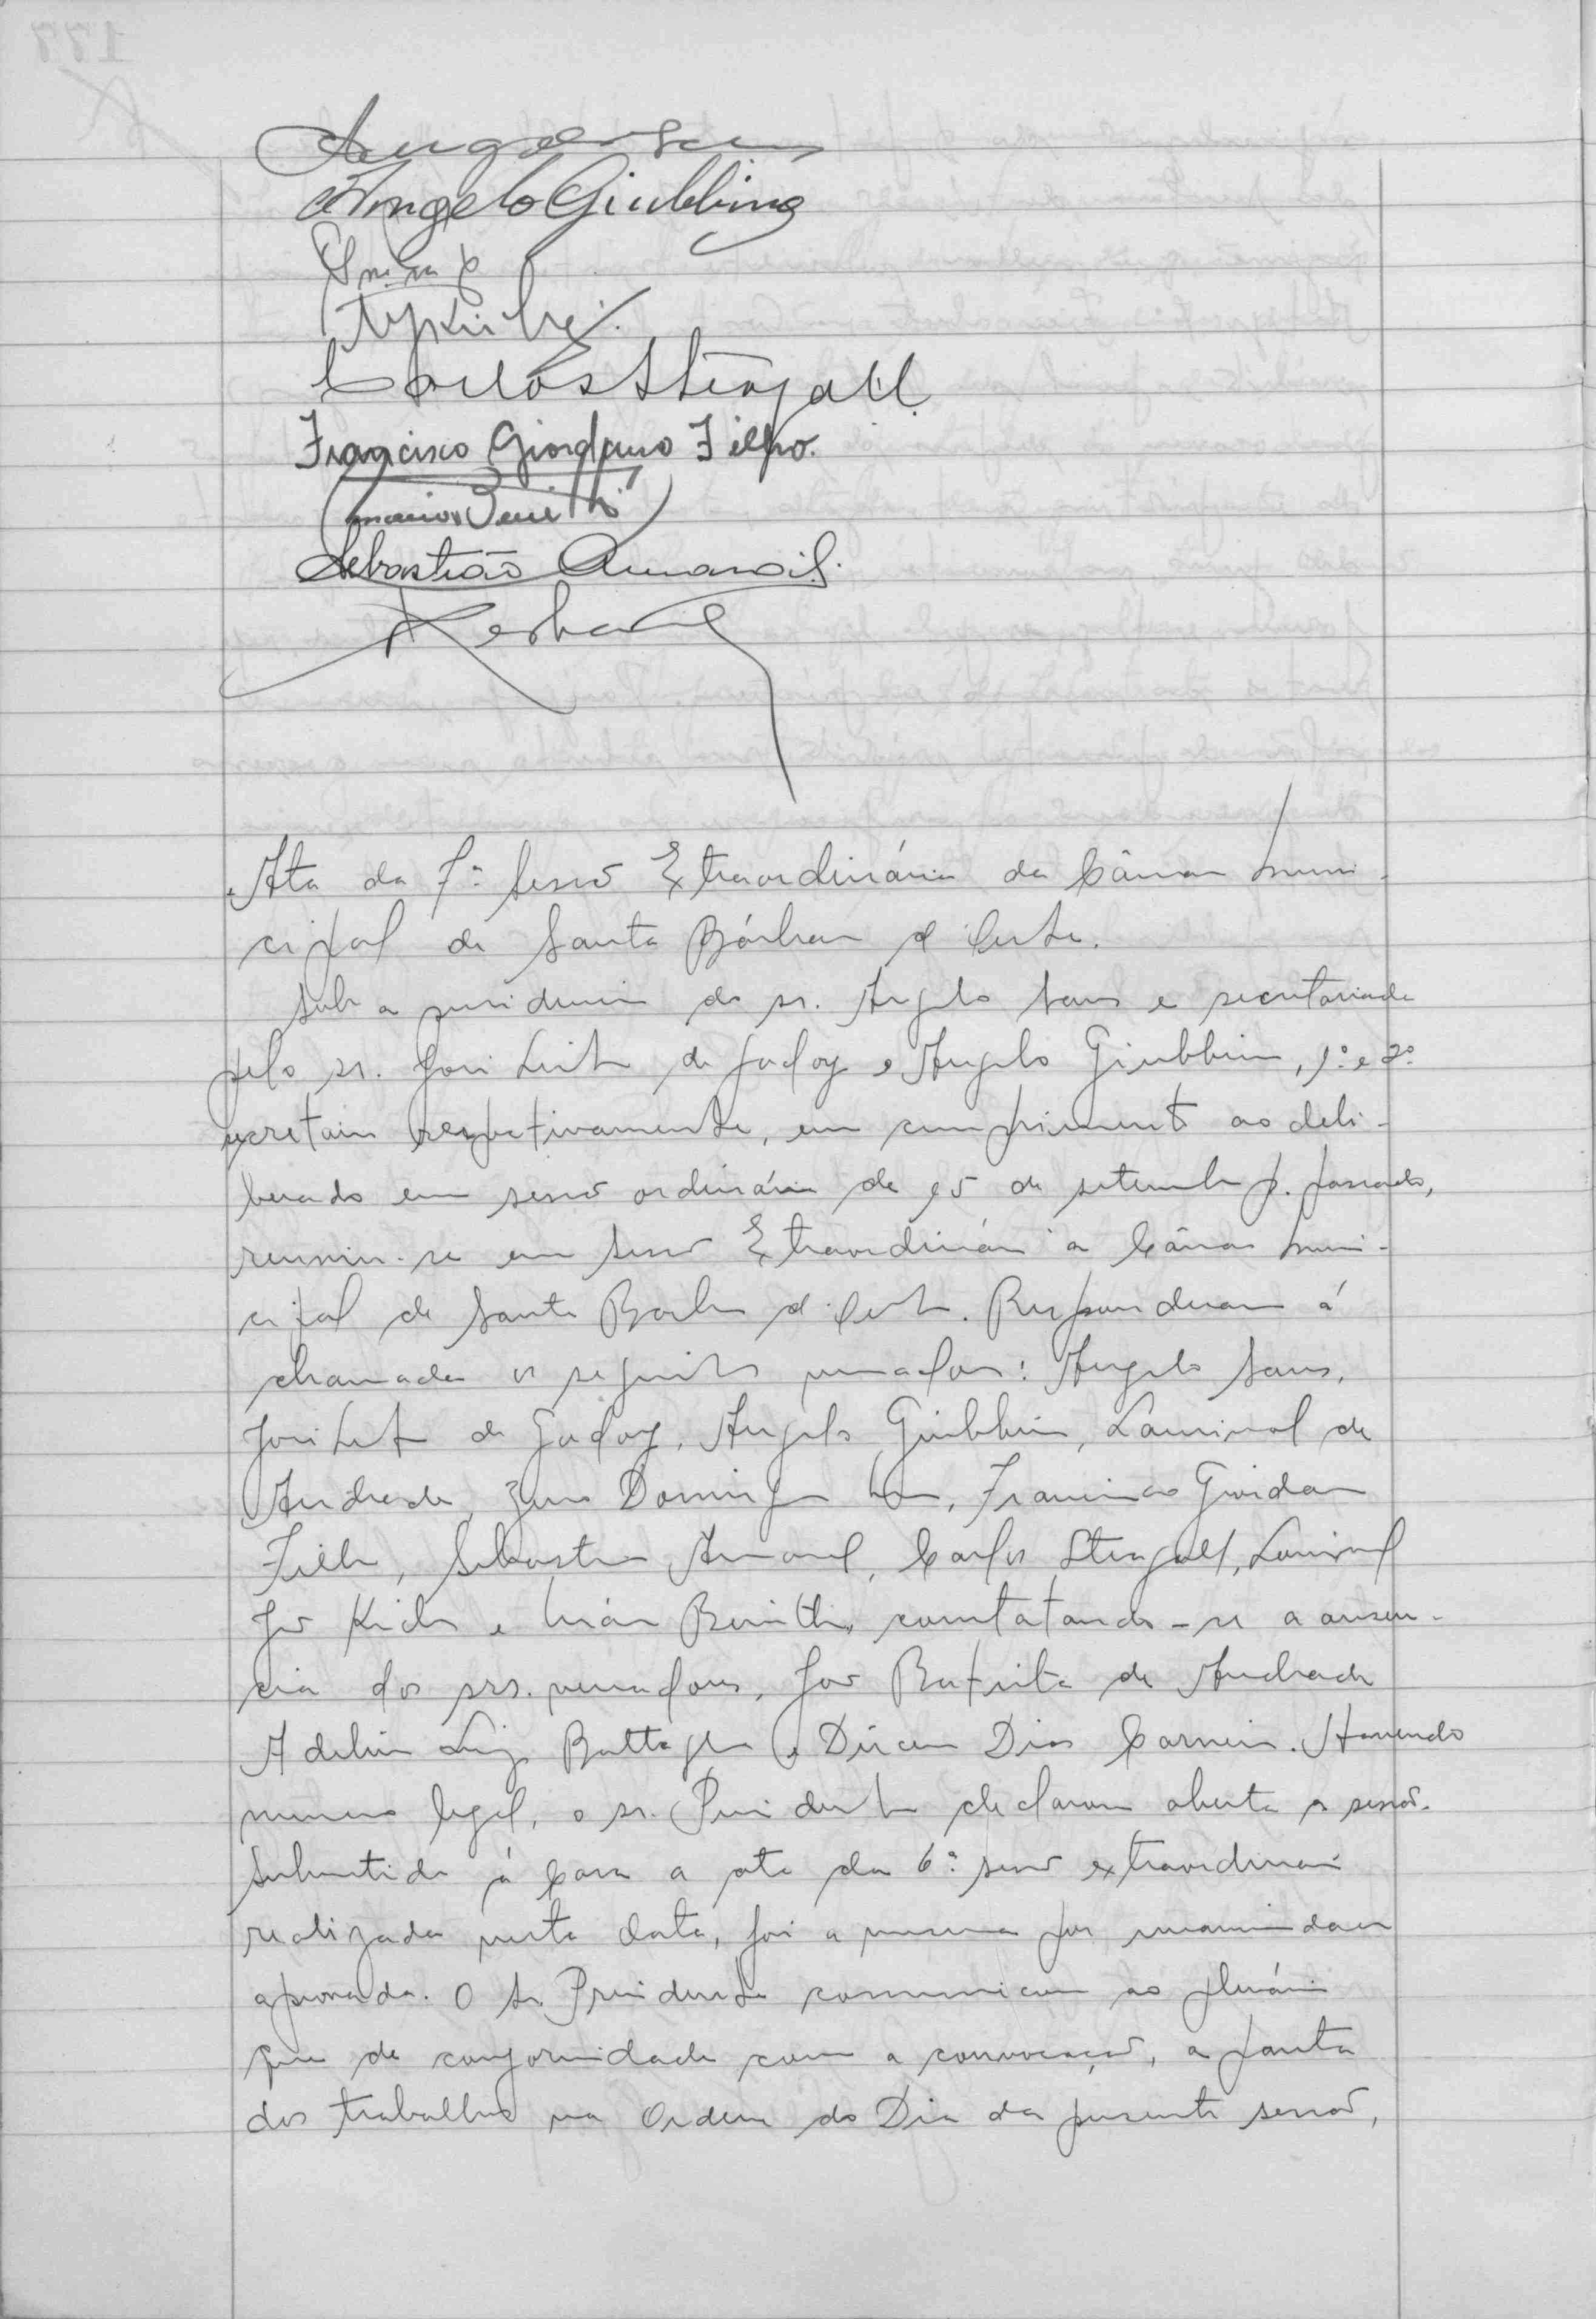 Angelo Sans
Angelo Giubbina
Carlos Steagall
Francisco Giordano Filho.
Mario Benitti
Sebastião Amaral.
Ata da 7ª Sessão Extraordinária da Câmara Muni-
cipal de Santa Bárbara d'Oeste.
Sob a presidencia do sr. Angelo Sans e secretariada
pelo sr. José Leite de Godoy e Angelo Giubbina, 1º e 2º
secretario respectivamente, em cumprimento ao deli-
berado em sessão ordinária de 15 de setembro p. passado,
reuniu-se em Sessão Extraordinária a Câmara Muni-
cipal de Santa Barbara d'Oeste. Responderam á
chamada os seguintes vereadores: Angelo Sans,
José Leite de Godoy, Angelo Giubbina, Lourival de
Andrade, Domingos, Francisco Giordano
Filho, Sebastião Amaral, Carlos Steagall,
e Mário Benitti, constatando-se a ausen-
cia dos srs. vereadores, João Batista de Andrade
Adelino Luiz Battaglia e Dirceu Dias Carneiro. Havendo
numero legal, o sr. Presidente declarou aberta a sessão.
Submetida á Casa a ata da 6ª sessão extraordinaria
realizada nesta data, foi a mesma por unanimidade
aprovada. O Sr. Presidente comunicou ao plenário
que de conformidade com a convocação, a pauta
dos trabalhos na Ordem do Dia da presente sessão,